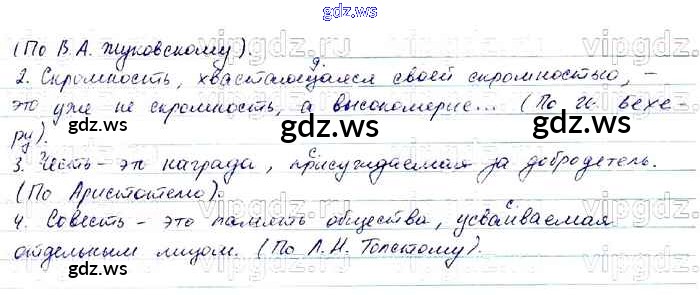 gdz.ws
(По В.А. Жуковскому).
2. Скромность, хвастающаяся своей скромностью, –
это уже не скромность, а высокомерие... (По И. Бехе-
ру).
3. Честь – это награда, присуждаемая за добродетель.
(По Аристотелю).
4. Совесть – это память общества, усваиваемая
отдельным лицом. (По Л.Н. Толстому).
gdz.ws